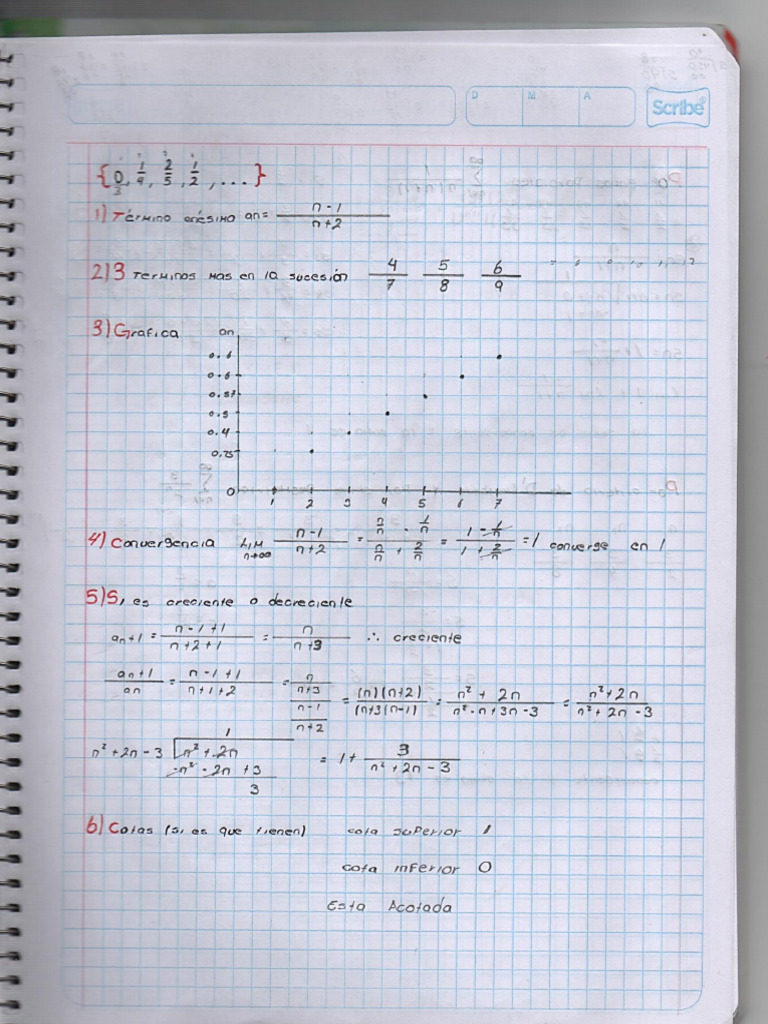 D M A Scribe
{0/3, 1/4, 2/5, 1/2, ...}
1) Término enésimo an= n-1/n+2
2) 3 Terminos mas en la sucesión 4/7 5/8 6/9
3) Grafica an
0.6
0.6
0.57
0.5
0.4
0.25
0
1 2 3 4 5 6 7
4) Convergencia Lim n→∞ n-1/n+2 = n/n - 1/n / n/n + 2/n = 1 - 1/n / 1 + 2/n = 1 converge en 1
5) Si es creciente o decreciente
an+1 = n-1+1/n+2+1 = n/n+3 ∴ creciente
an+1/an = n-1+1/n+1+2 = n/n+3 / n-1/n+2 = (n)(n+2)/(n+3(n-1) = n²+2n/n²-n+3n-3 = n²+2n/n²+2n-3
1
n²+2n-3 n²+2n = 1+ 3/n²+2n-3
-n²-2n+3
3
6) Cotas (si es que tienen) cota superior 1
cota inferior 0
Esta Acotada